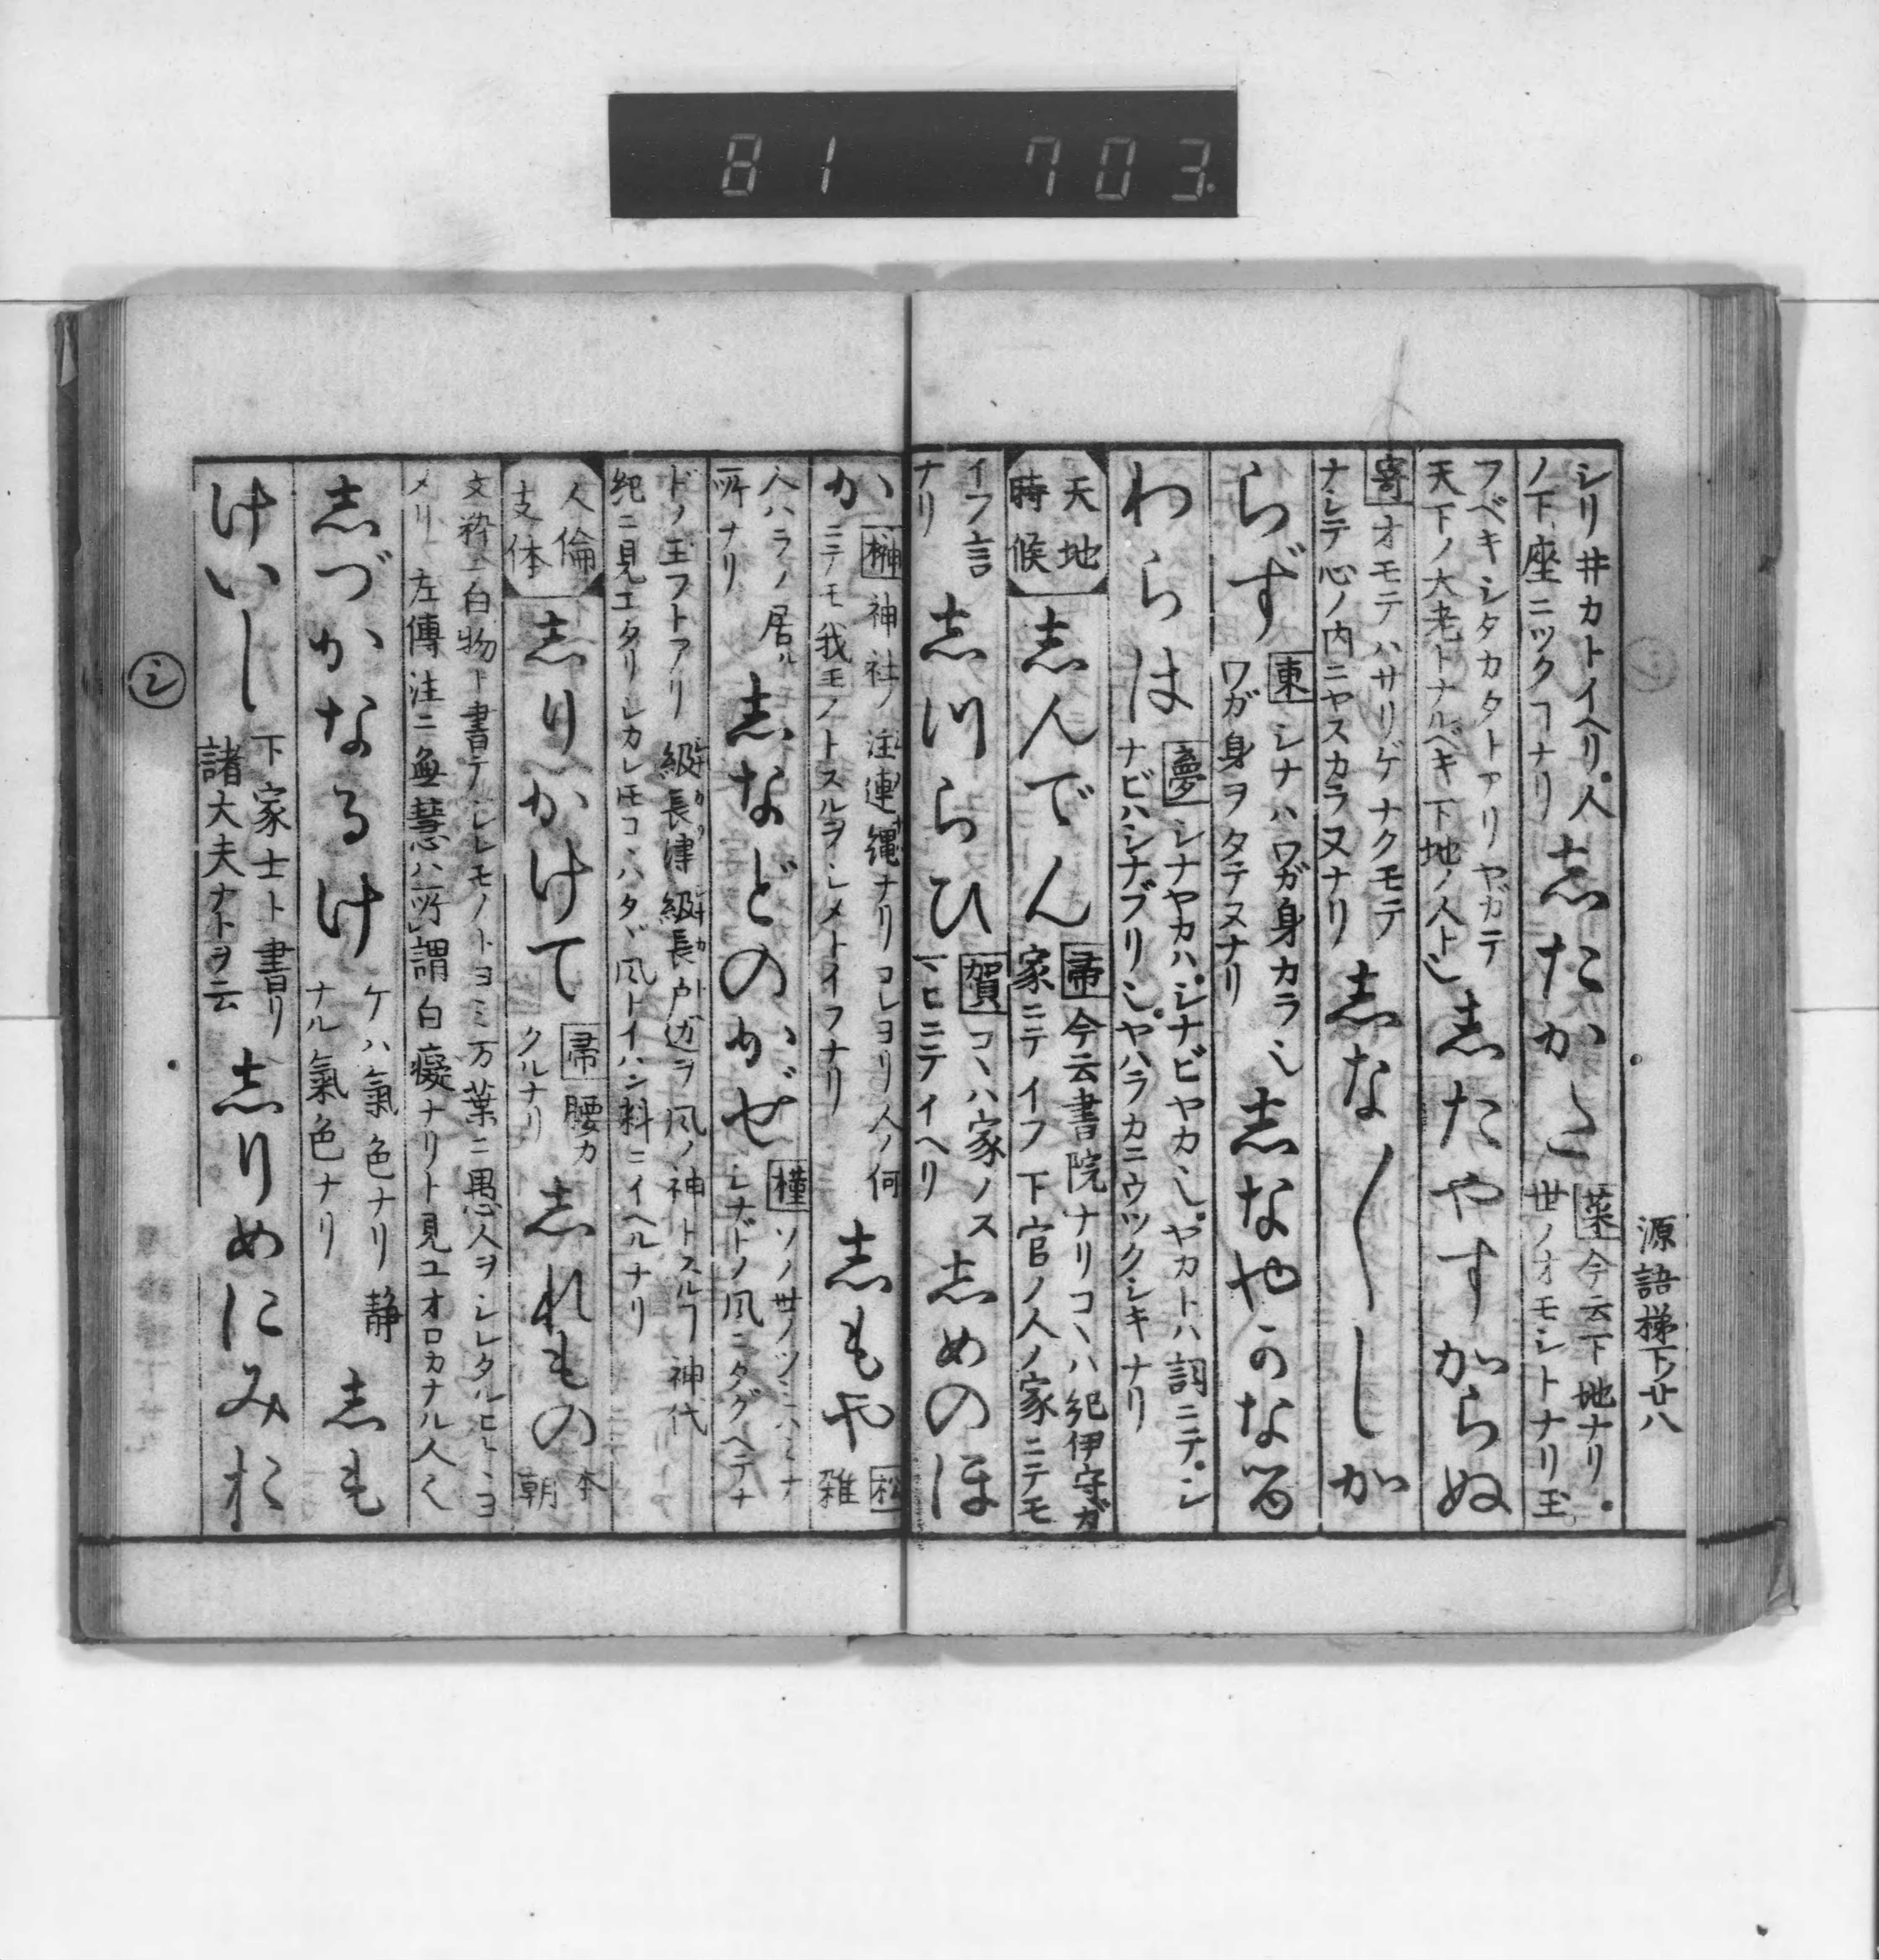 81 703
源語梯下ノ廿八
シリ井カトイヘリ。人
ノ下座ニツクコナリ
志たかた
葵 今云下地ナリ。
世ノオモシトナリ玉。
フベキシタカタトアリヤガテ
天下ノ大老トナルベキ下地ノ人ト
志たやすからぬ
寄 オモテハサリゲナクモテ
ナシテ心ノ内ニヤスカラヌナリ
志な〳〵しか
らず
東 シナハワガ身カラ
ワガ身ヲタテヌナリ
志なやかなる
わらは
夢 シナヤカハ。シナビヤカ。ヤカトハ詞ニテ。シ
ナビハシナブリ。ヤハラカニウツクシキナリ
天地
時候
志んでん
帚 今云書院ナリコヽハ紀伊守ガ
家ニテイフ下官ノ人ノ家ニテモ
イフ言
ナリ
志つらひ
賀 コヽハ家ノス
ヽヒニテイヘリ
志めのほ
か
榊 神社ノ注連縄ナリコレヨリ人ノ何
ニテモ我モノトスルヲシメトイフナリ
志もや
松
雑
人ハラノ居ル
所ナリ
志などのかぜ
槿 ソノ世ノツミハミナ
シナドノ風ニタグヘテナ
ドノ玉フトアリ 級長津級長戸辺ヲ風ノ神トスルフ神代
紀ニ見エタリシカレ𪜈コヽハタヾ風トイハン料ニイヘルナリ
人倫
支体
志りかけて
帚 腰カ
クルナリ
志れもの
本
朝
文粋ニ白物ト書テシレモノトヨミ万葉ニ愚人ヲシレタルヒトヽヨ
メリ 左傳注ニ無慧ハ所謂白癡ナリト見ユオロカナル人
志づかなるけ
ケハ氣色ナリ静
ナル氣色ナリ
志も
けいし
下家士ト書リ
諸大夫ナトヲ云
志りめにみお
シ